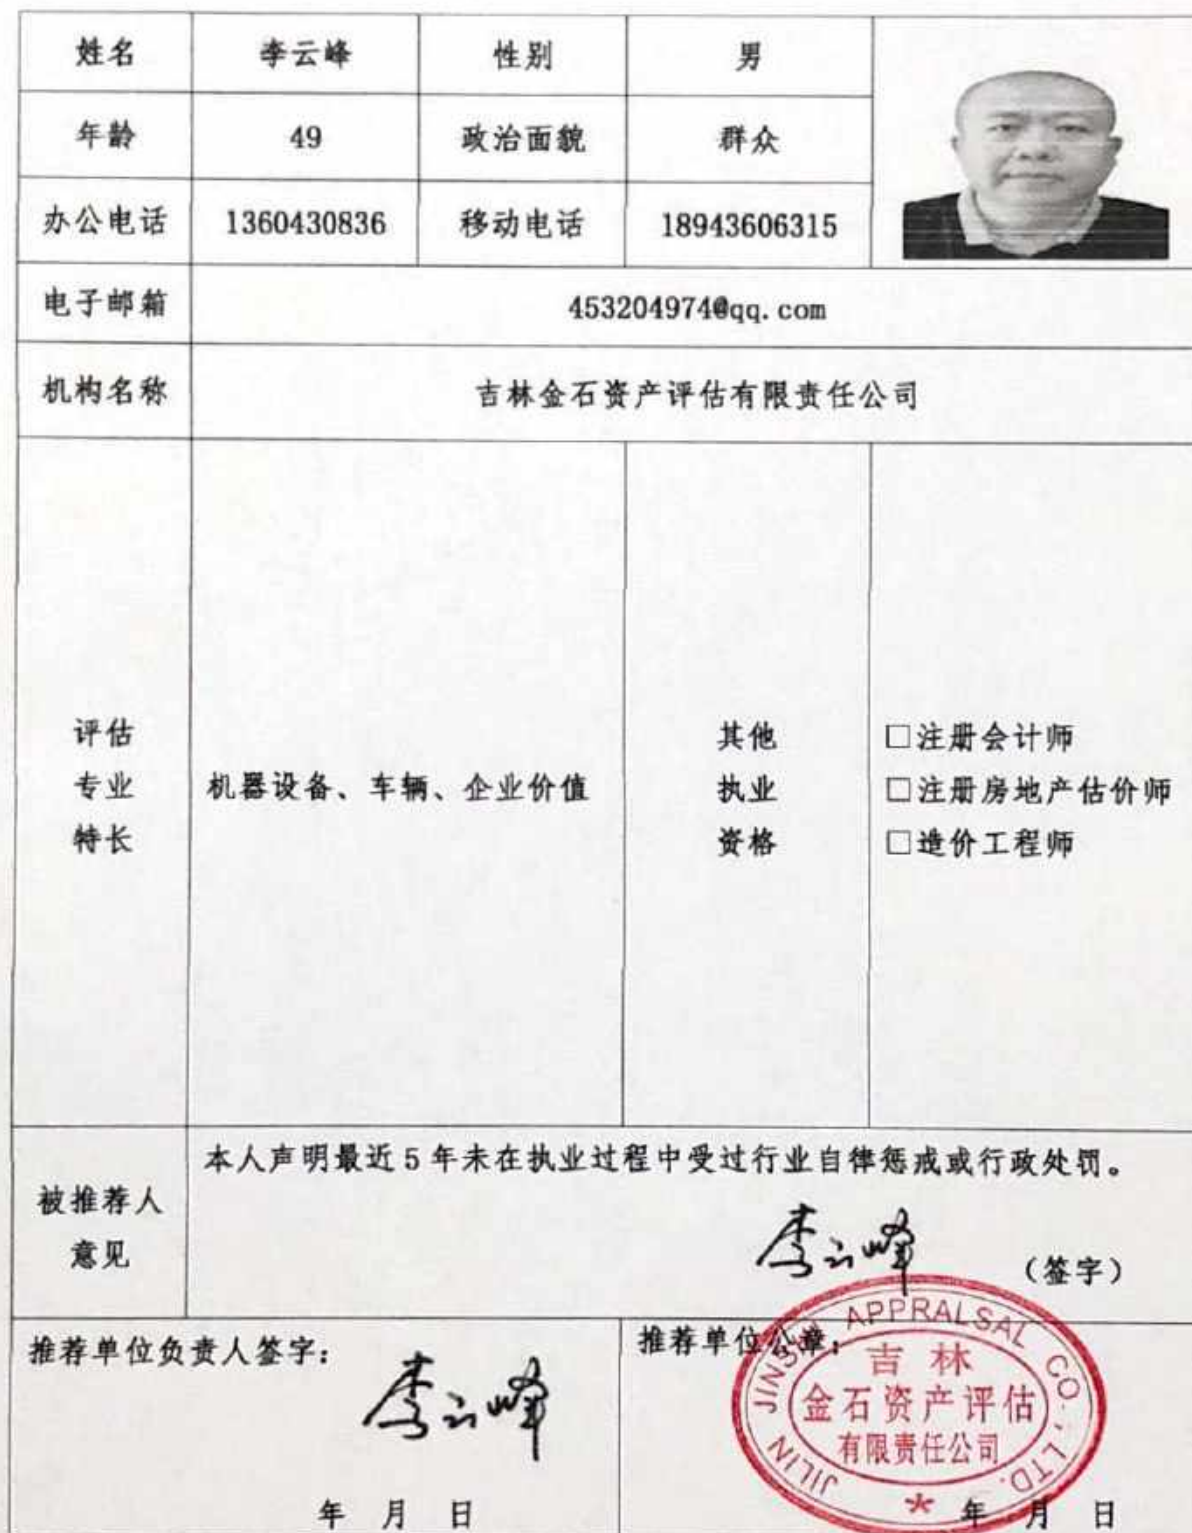 姓名 李云峰 性别 男
年龄 49 政治面貌 群众
办公电话 1360430836 移动电话 18943606315
电子邮箱 453204974@qq.com
机构名称 吉林金石资产评估有限责任公司
评估
专业
特长
机器设备、车辆、企业价值
其他
执业
资格
□注册会计师
□注册房地产估价师
□造价工程师
被推荐人
意见
本人声明最近5年未在执业过程中受过行业自律惩戒或行政处罚。
李云峰 (签字)
推荐单位负责人签字:
李云峰
年 月 日
推荐单位公章:
JILIN JINSHI APPRALSAL CO., LTD.
吉林
金石资产评估
有限责任公司
年 月 日